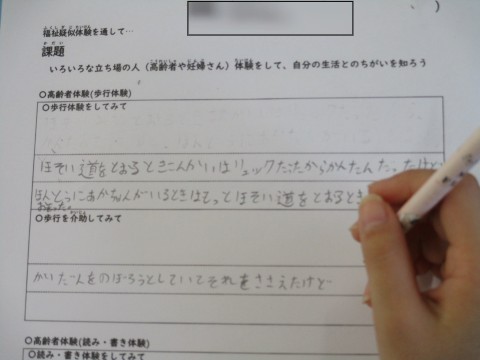 )
福祉疑似体験を通して…
課題
いろいろな立ち場の人（高齢者や妊婦さん）体験をして、自分の生活とのちがいを知ろう
○高齢者体験(歩行体験)
○歩行体験をしてみて
ほそい道をとおるときこんかいはリュックだったからかんたんだったけど
ほんとうにあかちゃんがいるときはもっとほそい道をとおるとき
○歩行を介助してみて
かいだんをのぼろうとしていてそれをささえたけど
○高齢者体験(読み・書き体験)
○読み・書き体験をしてみて